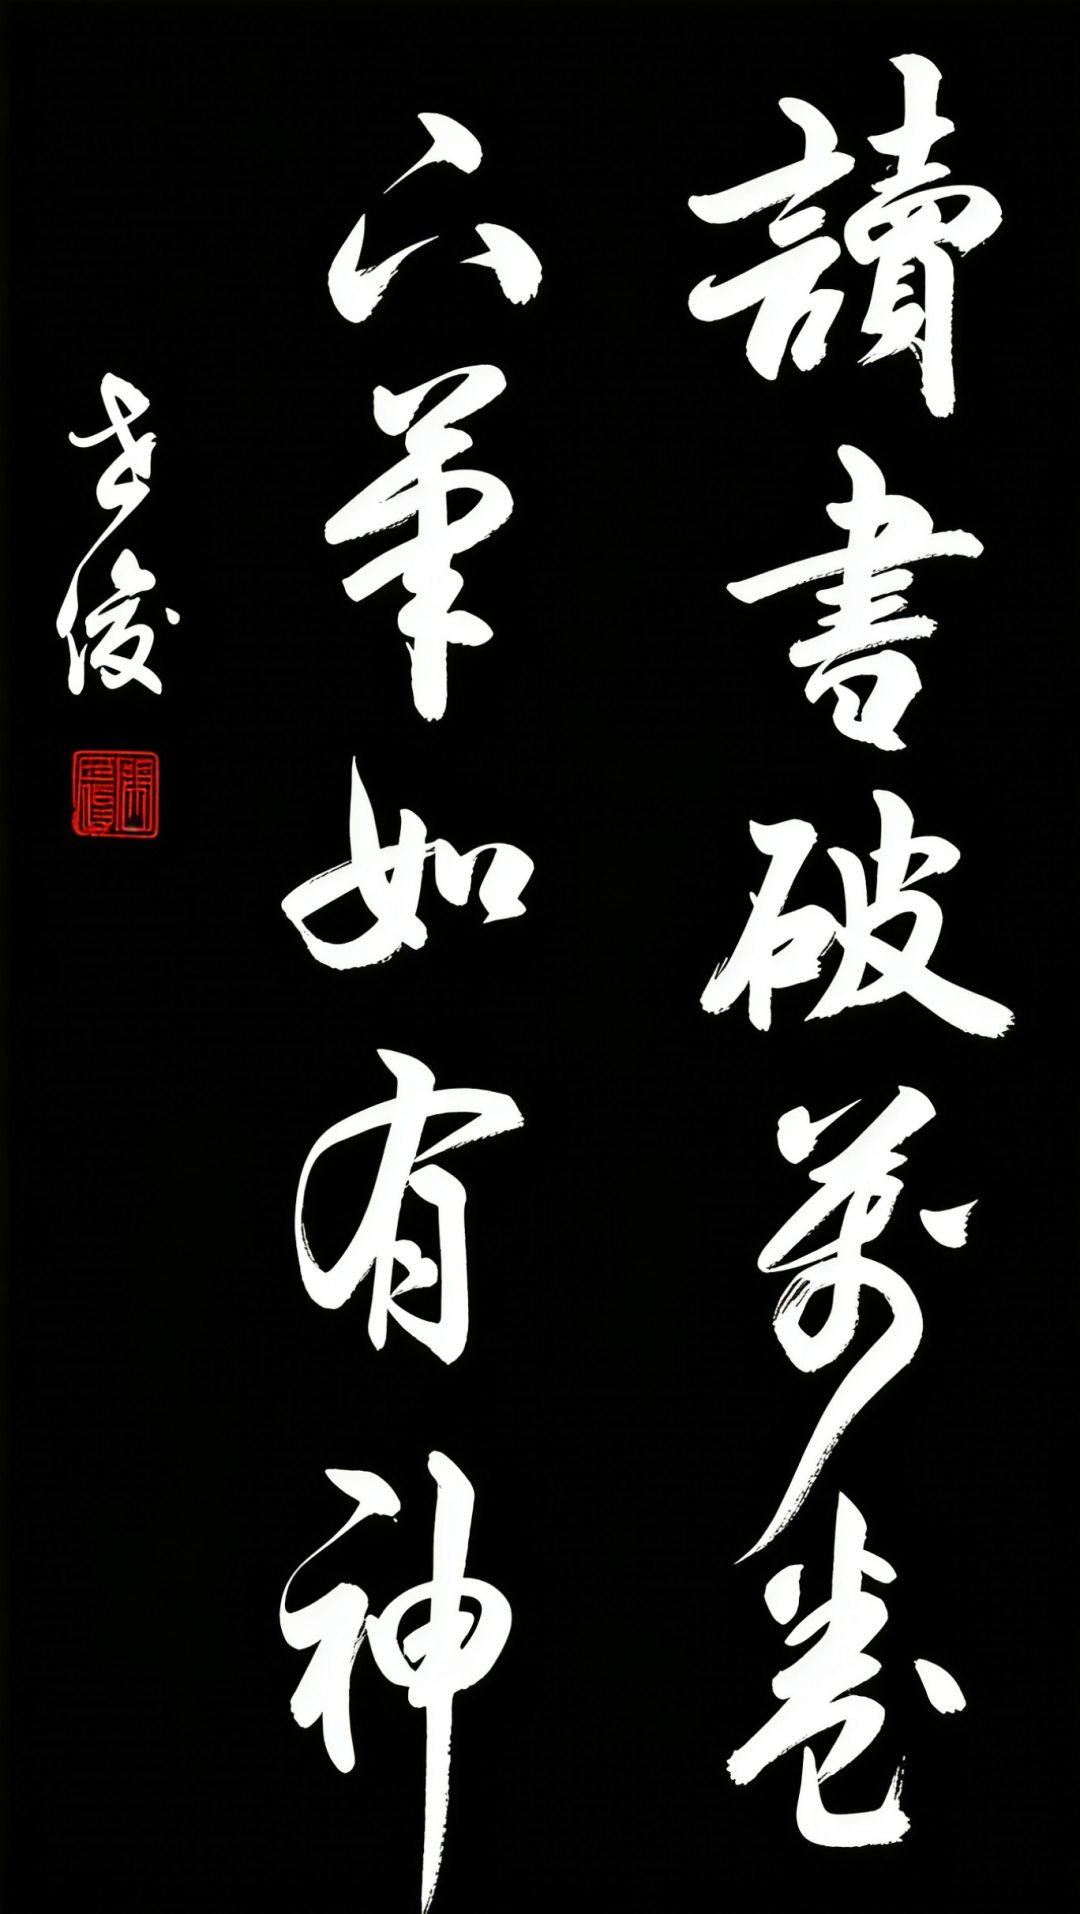 讀書破萬卷
下筆如有神
俊